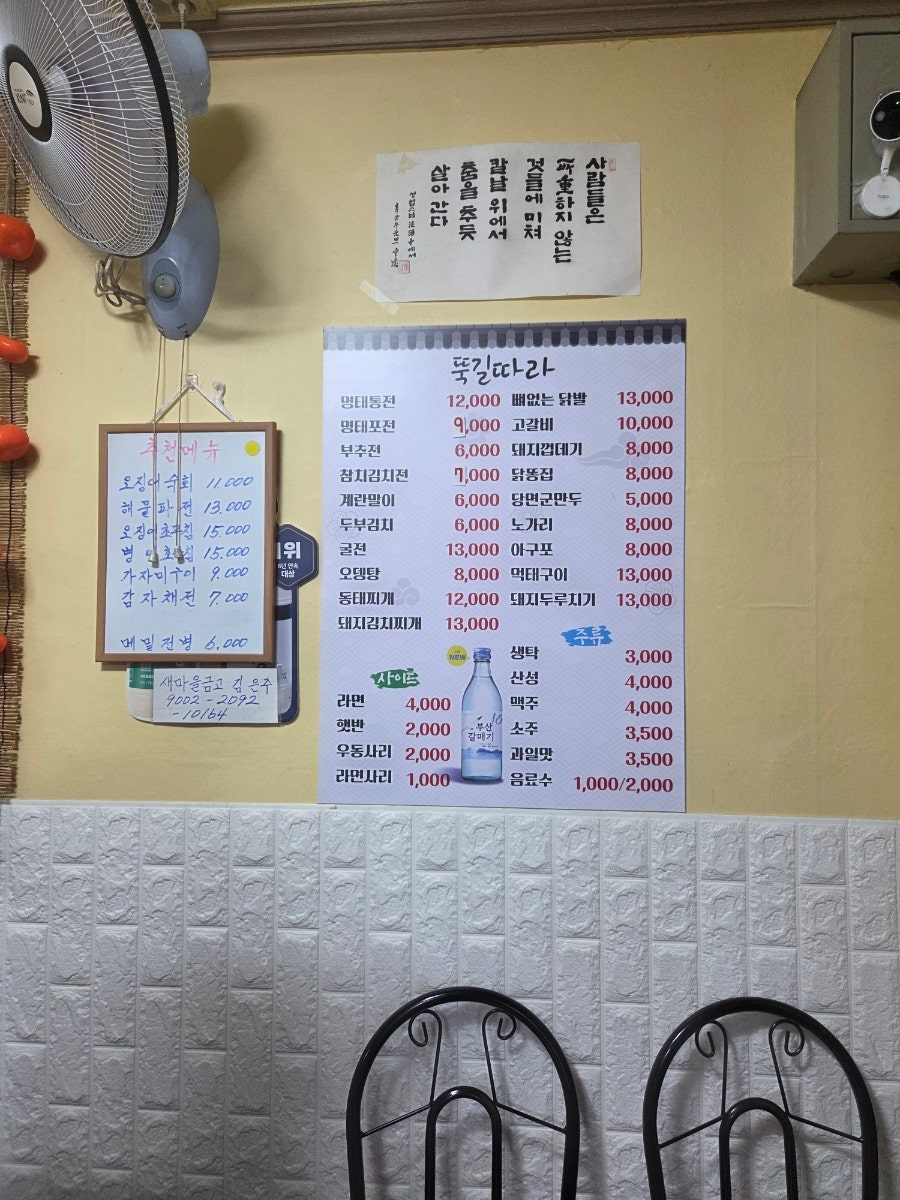 사람들은
所重하지 않는
것들에 미쳐
칼날 위에서
춤을 추듯
살아 간다
뚝길따라
명태통전 12,000
명태포전 9,000
부추전 6,000
참치김치전 7,000
계란말이 6,000
두부김치 6,000
굴전 13,000
오뎅탕 8,000
동태찌개 12,000
돼지김치찌개 13,000
뼈없는 닭발 13,000
고갈비 10,000
돼지껍데기 8,000
닭똥집 8,000
당면군만두 5,000
노가리 8,000
아구포 8,000
먹태구이 13,000
돼지두루치기 13,000
사이드
라면 4,000
햇반 2,000
우동사리 2,000
라면사리 1,000
NEW
16
부산
갈매기
주류
생탁 3,000
산성 4,000
맥주 4,000
소주 3,500
과일맛 3,500
음료수 1,000/2,000
추천메뉴
오징어숙회 11.000
해물파전 13.000
오징어초무침 15.000
15.000
가자미구이 9.000
감자채전 7.000
메밀전병 6.000
위
대상
새마을금고 김은주
9002-2092
-10164